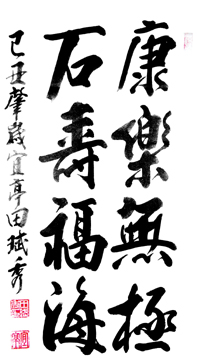 康樂無極
石壽福海
己丑肇歲宜亭田斌秀